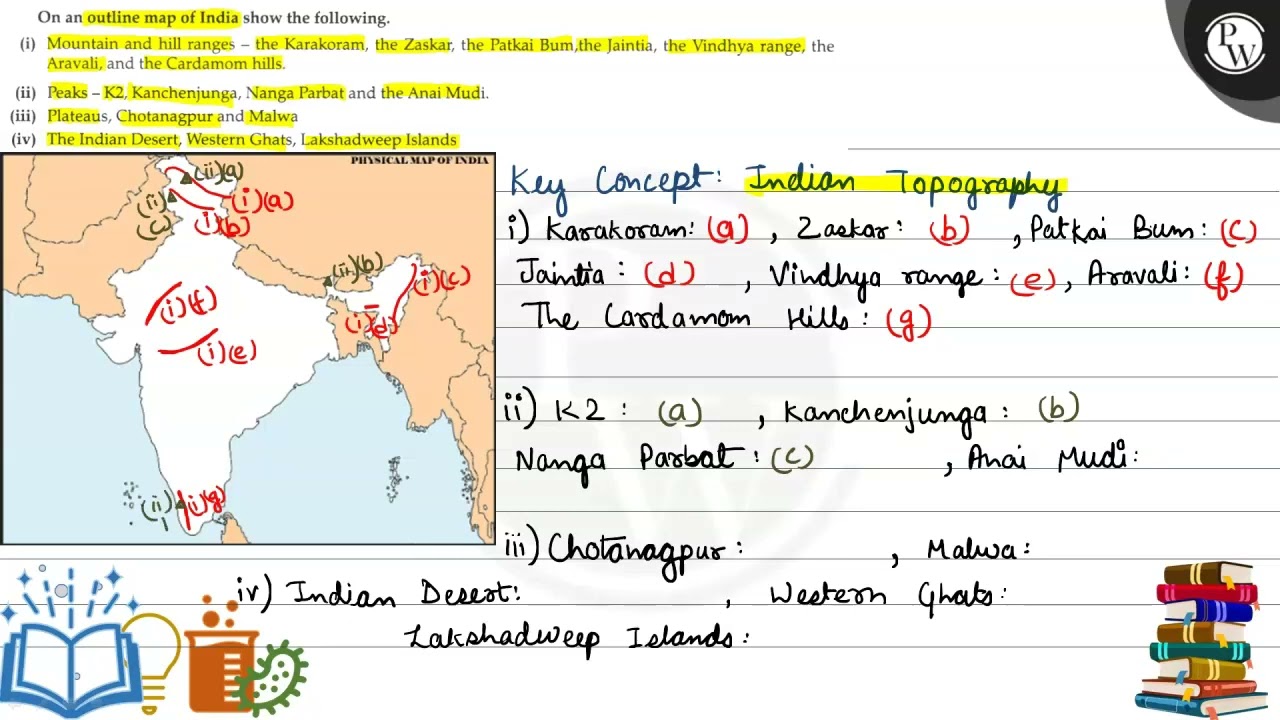 On an outline map of India show the following.
(i) Mountain and hill ranges – the Karakoram, the Zaskar, the Patkai Bum,the Jaintia, the Vindhya range, the
Aravali, and the Cardamom hills.
(ii) Peaks – K2, Kanchenjunga, Nanga Parbat and the Anai Mudi.
(iii) Plateaus, Chotanagpur and Malwa
(iv) The Indian Desert, Western Ghats, Lakshadweep Islands
PW
PHYSICAL MAP OF INDIA
(ii)(a)
(ii)
(c)
(i)(a)
(i)(b)
(ii)(b)
(i)(c)
(i)(f)
(i)(d)
(i)(e)
(ii)
(i)(g)
Key Concept: Indian Topography
i) Karakoram: (a) , Zaskar: (b) , Patkai Bum: (c)
Jaintia: (d) , Vindhya range: (e), Aravali: (f)
The Cardamom Hills: (g)
ii) K2: (a) , Kanchenjunga: (b)
Nanga Parbat: (c) , Anai Mudi:
iii) Chotanagpur: , Malwa:
iv) Indian Desert: , Western Ghats:
Lakshadweep Islands: